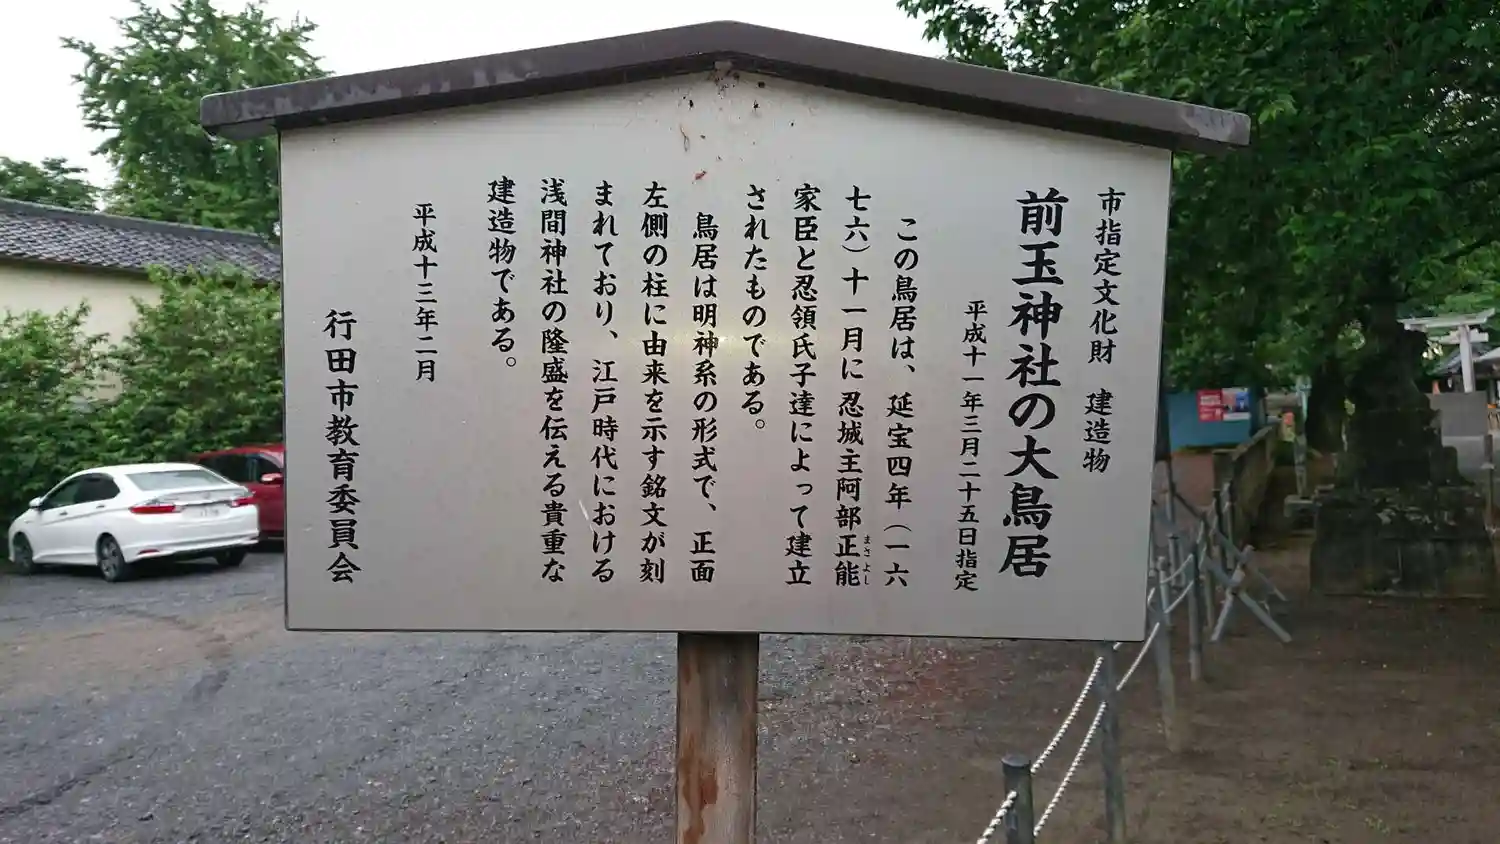 市指定文化財　建造物
前玉神社の大鳥居
平成十一年三月二十五日指定
この鳥居は、延宝四年（一六
七六）十一月に忍城主阿部正能
まさよし
家臣と忍領氏子達によって建立
されたものである。
鳥居は明神系の形式で、正面
左側の柱に由来を示す銘文が刻
まれており、江戸時代における
浅間神社の隆盛を伝える貴重な
建造物である。
平成十三年二月
行田市教育委員会